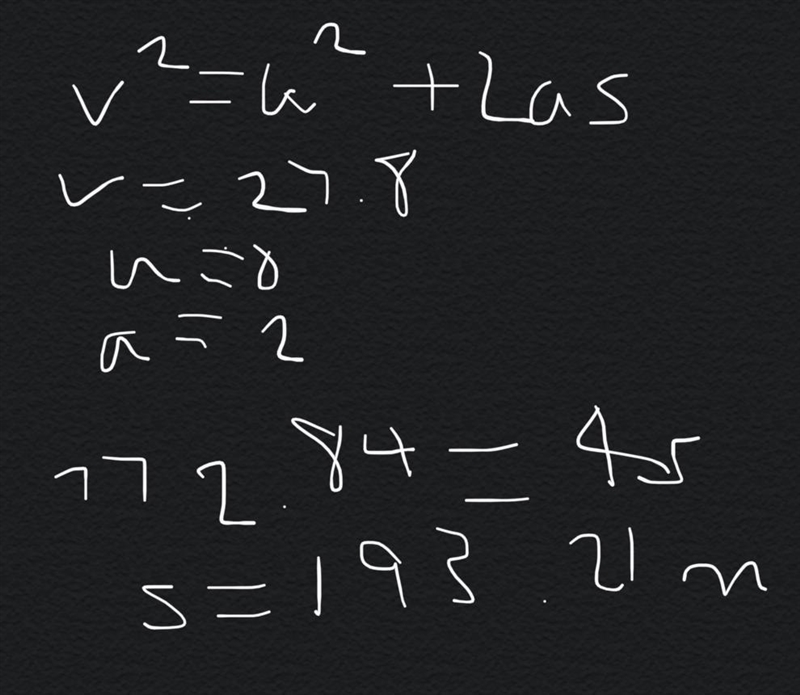 v²=u²+2as
v=27.8
u=0
a=2
772.84=4s
s=193.21m